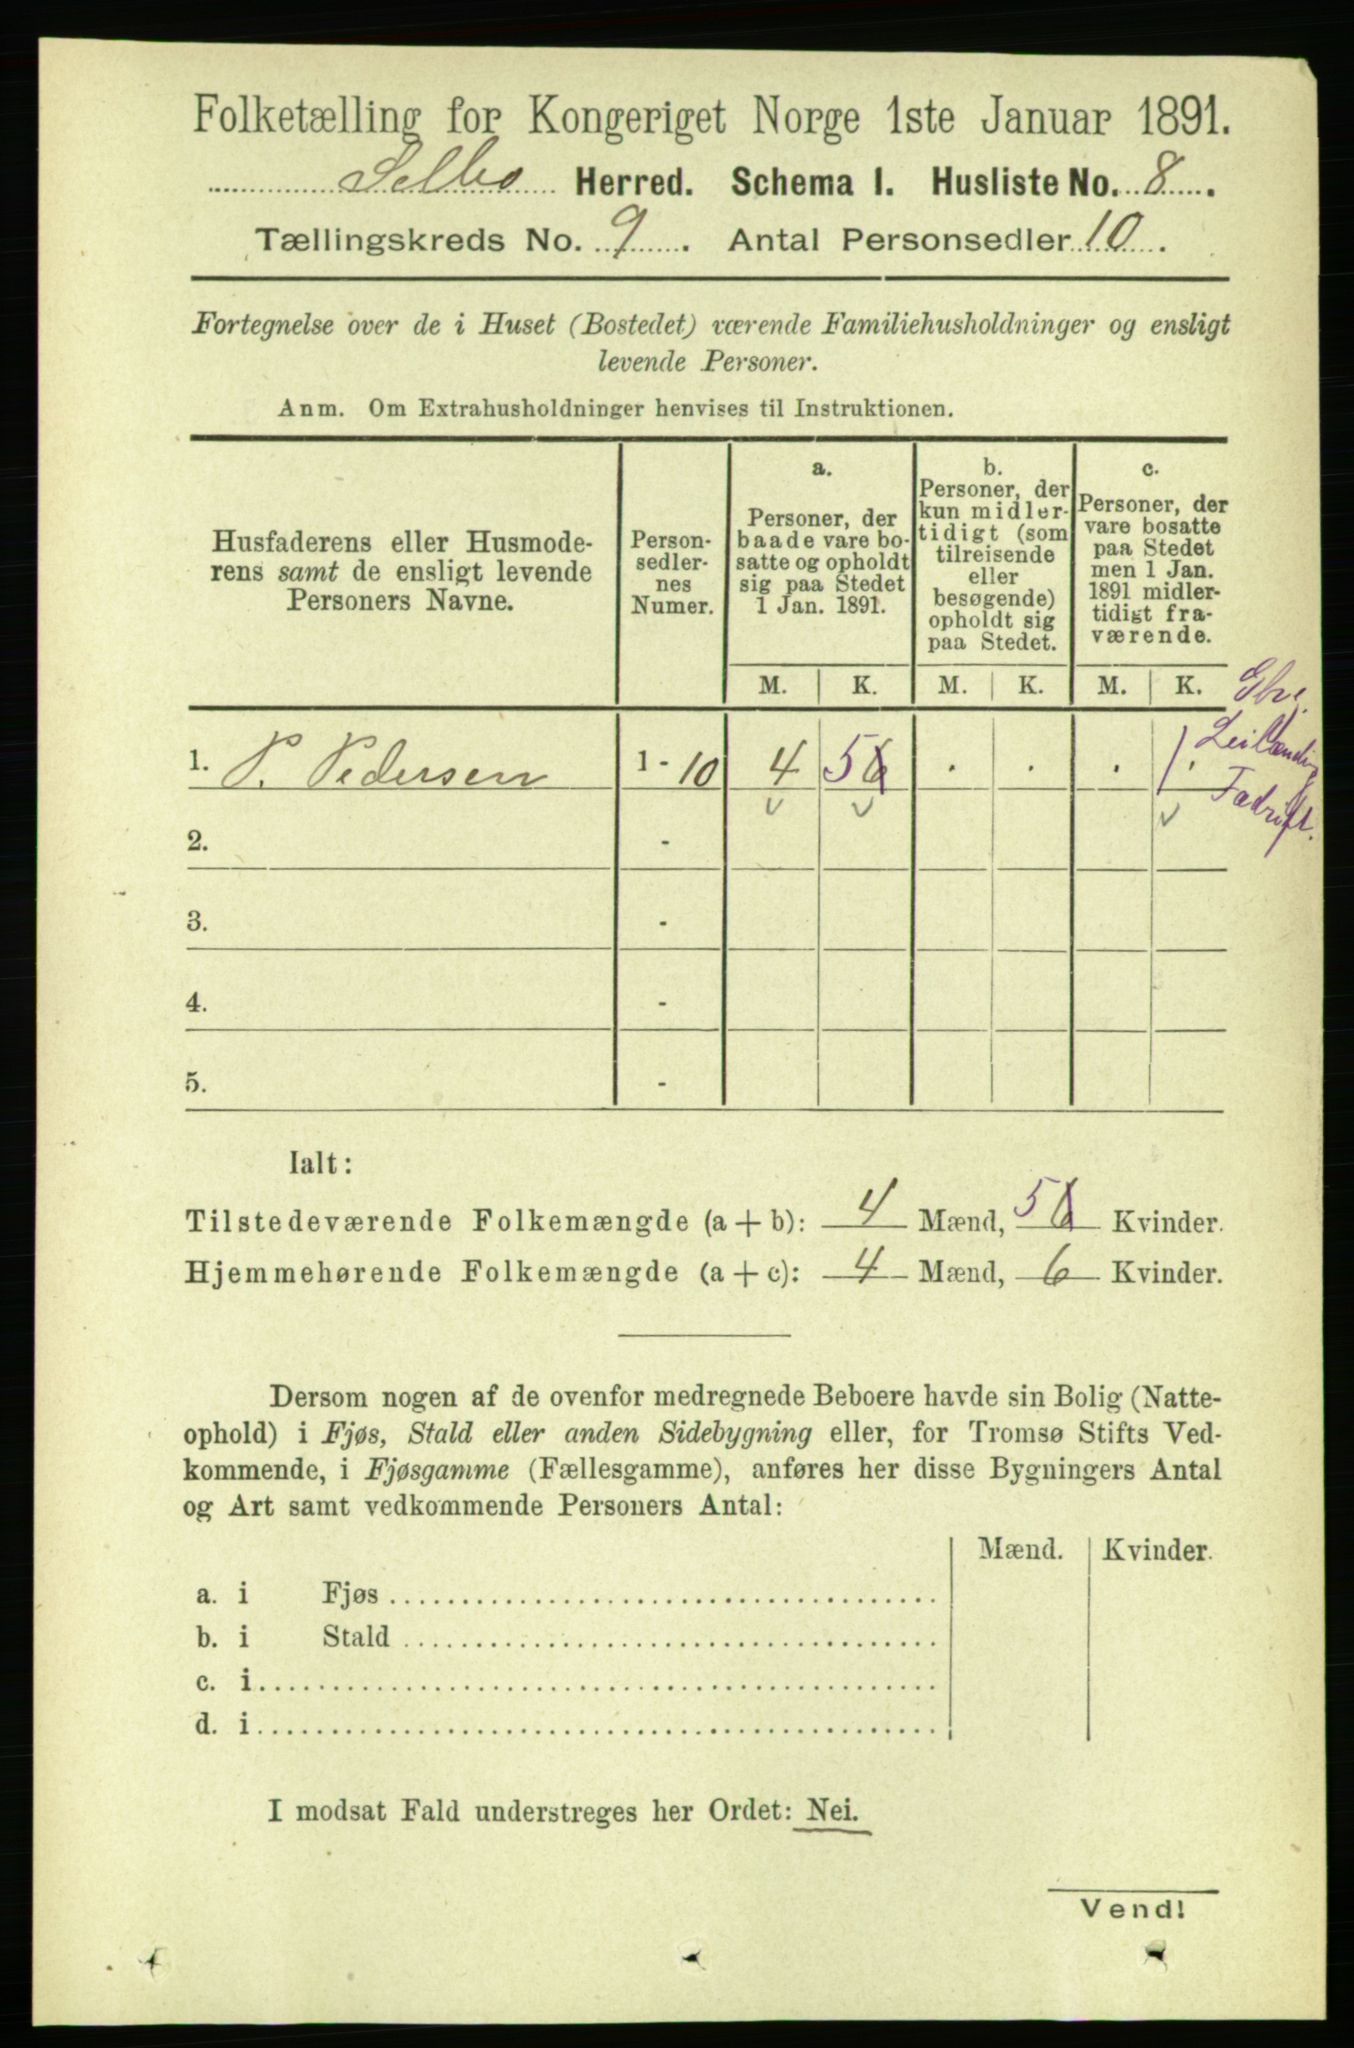 Folketælling for Kongeriget Norge 1ste Januar 1891.
Selbo Herred. Schema 1. Husliste No. 8.
Tællingskreds No. 9. Antal Personsedler 10.
Fortegnelse over de i Huset (Bostedet) værende Familiehusholdninger og ensligt
levende Personer.
Anm. Om Extrahusholdninger henvises til Instruktionen.
Husfaderens eller Husmode-
rens samt de ensligt levende
Personers Navne.
Person-
sedler-
nes
Numer.
a.
Personer, der
baade vare bo-
satte og opholdt
sig paa Stedet
1 Jan. 1891.
b.
Personer, der
kun midler-
tidigt (som
tilreisende
eller
besøgende)
opholdt sig
paa Stedet.
c.
Personer, der
vare bosatte
paa Stedet
men 1 Jan.
1891 midler-
tidigt fra-
værende.
M. K. M. K. M. K.
Leilænding
Fadrift.
1. P. Pedersen 1 - 10 4 5 6 . . . 1.
2. -
3. -
4. -
5. -
Ialt:
Tilstedeværende Folkemængde (a + b): 4 Mænd, 5 6 Kvinder.
Hjemmehørende Folkemængde (a + c): 4 Mænd, 6 Kvinder.
Dersom nogen af de ovenfor medregnede Beboere havde sin Bolig (Natte-
ophold) i Fjøs, Stald eller anden Sidebygning eller, for Tromsø Stifts Ved-
kommende, i Fjøsgamme (Fællesgamme), anføres her disse Bygningers Antal
og Art samt vedkommende Personers Antal:
Mænd. Kvinder.
a. i Fjøs
b. i Stald
c. i
d. i
I modsat Fald understreges her Ordet: Nei.
Vend!